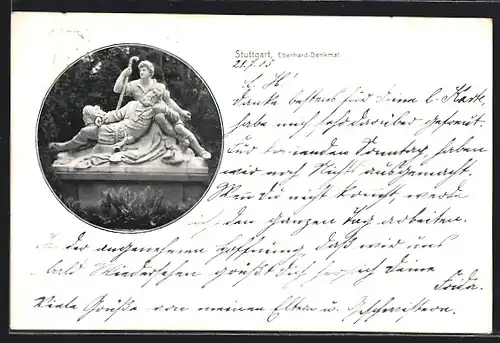 Stuttgart, Eberhard-Denkmal.
21.7.05
L. H!
Danke bestens für Deine l. Karte,
habe mich sehr darüber gefreut.
Für kommenden Sonntag haben
wir noch Nichts ausgemacht.
Wenn Du nicht kommst, werde
ich den ganzen Tag arbeiten.
In der angenehmen Hoffnung, daß wir uns
bald Wiedersehen grüßt Dich herzlich Deine
Viele Grüße von meinen Eltern u. Geschwistern.